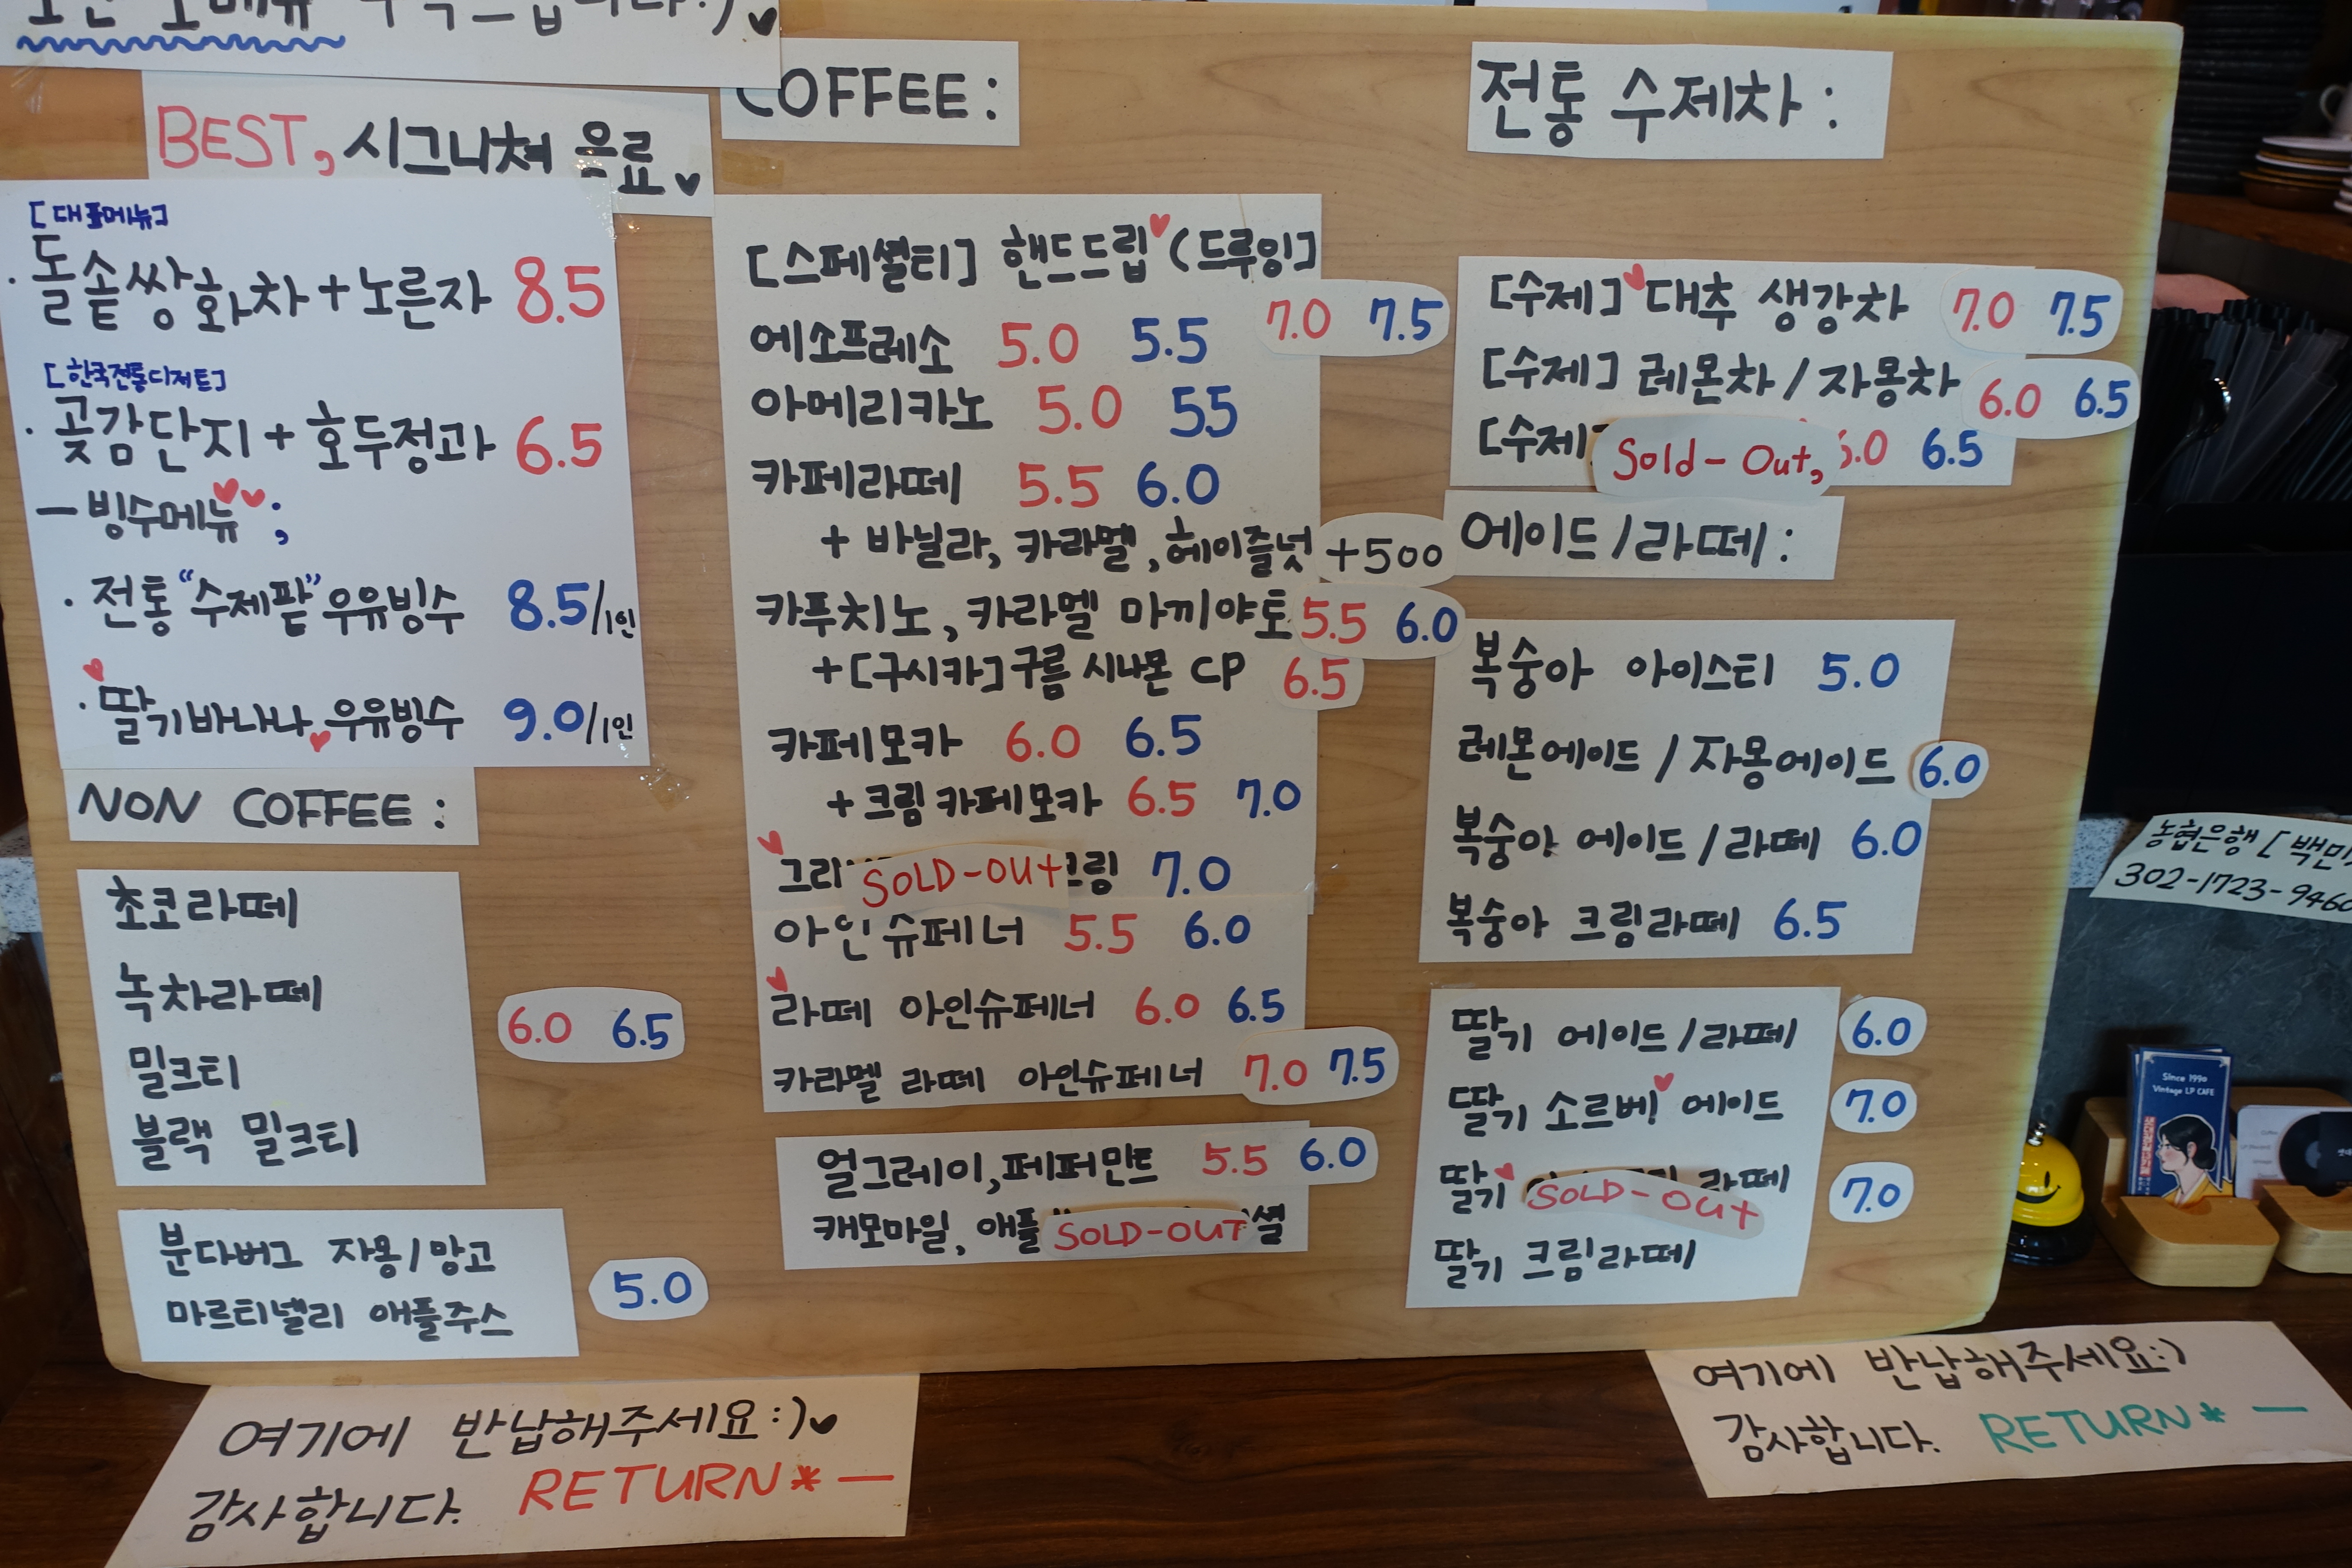 BEST, 시그니쳐 음료
[대표메뉴]
· 돌솥쌍화차+노른자 8.5
[한국전통디저트]
· 곶감단지+호두정과 6.5
— 빙수메뉴 ;
· 전통 "수제팥" 우유빙수 8.5/1인
· 딸기바나나 우유빙수 9.0/1인
NON COFFEE :
초코라떼
녹차라떼
밀크티
블랙 밀크티
6.0 6.5
분다버그 자몽/망고
마르티넬리 애플주스
5.0
COFFEE :
[스페셜티] 핸드드립 (드루잉]
7.0 7.5
에소프레소 5.0 5.5
아메리카노 5.0 55
카페라떼 5.5 6.0
+ 바닐라, 카라멜, 헤이즐넛 +500
카푸치노, 카라멜 마끼야토 5.5 6.0
+[구시카] 구름 시나몬 CP 6.5
카페모카 6.0 6.5
+크림카페모카 6.5 7.0
SOLD-OUT 크림 7.0
아인슈페너 5.5 6.0
라떼 아인슈페너 6.0 6.5
카라멜 라떼 아인슈페너 7.0 7.5
얼그레이, 페퍼민트 5.5 6.0
캐모마일, 애플 SOLD-OUT
전통 수제차 :
[수제] 대추 생강차 7.0 7.5
[수제] 레몬차/자몽차 6.0 6.5
[수제] Sold-Out, 6.5
에이드/라떼 :
복숭아 아이스티 5.0
레몬에이드/자몽에이드 6.0
복숭아 에이드/라떼 6.0
복숭아 크림라떼 6.5
딸기 에이드/라떼 6.0
딸기 소르베! 에이드 7.0
딸기 SOLD-OUT 라떼 7.0
딸기 크림라떼
농협은행 [백민
302-1723-9460
Since 1990
Vintage LP CAFE
여기에 반납해주세요:)
감사합니다. RETURN* —
여기에 반납해주세요:)
감사합니다. RETURN* —